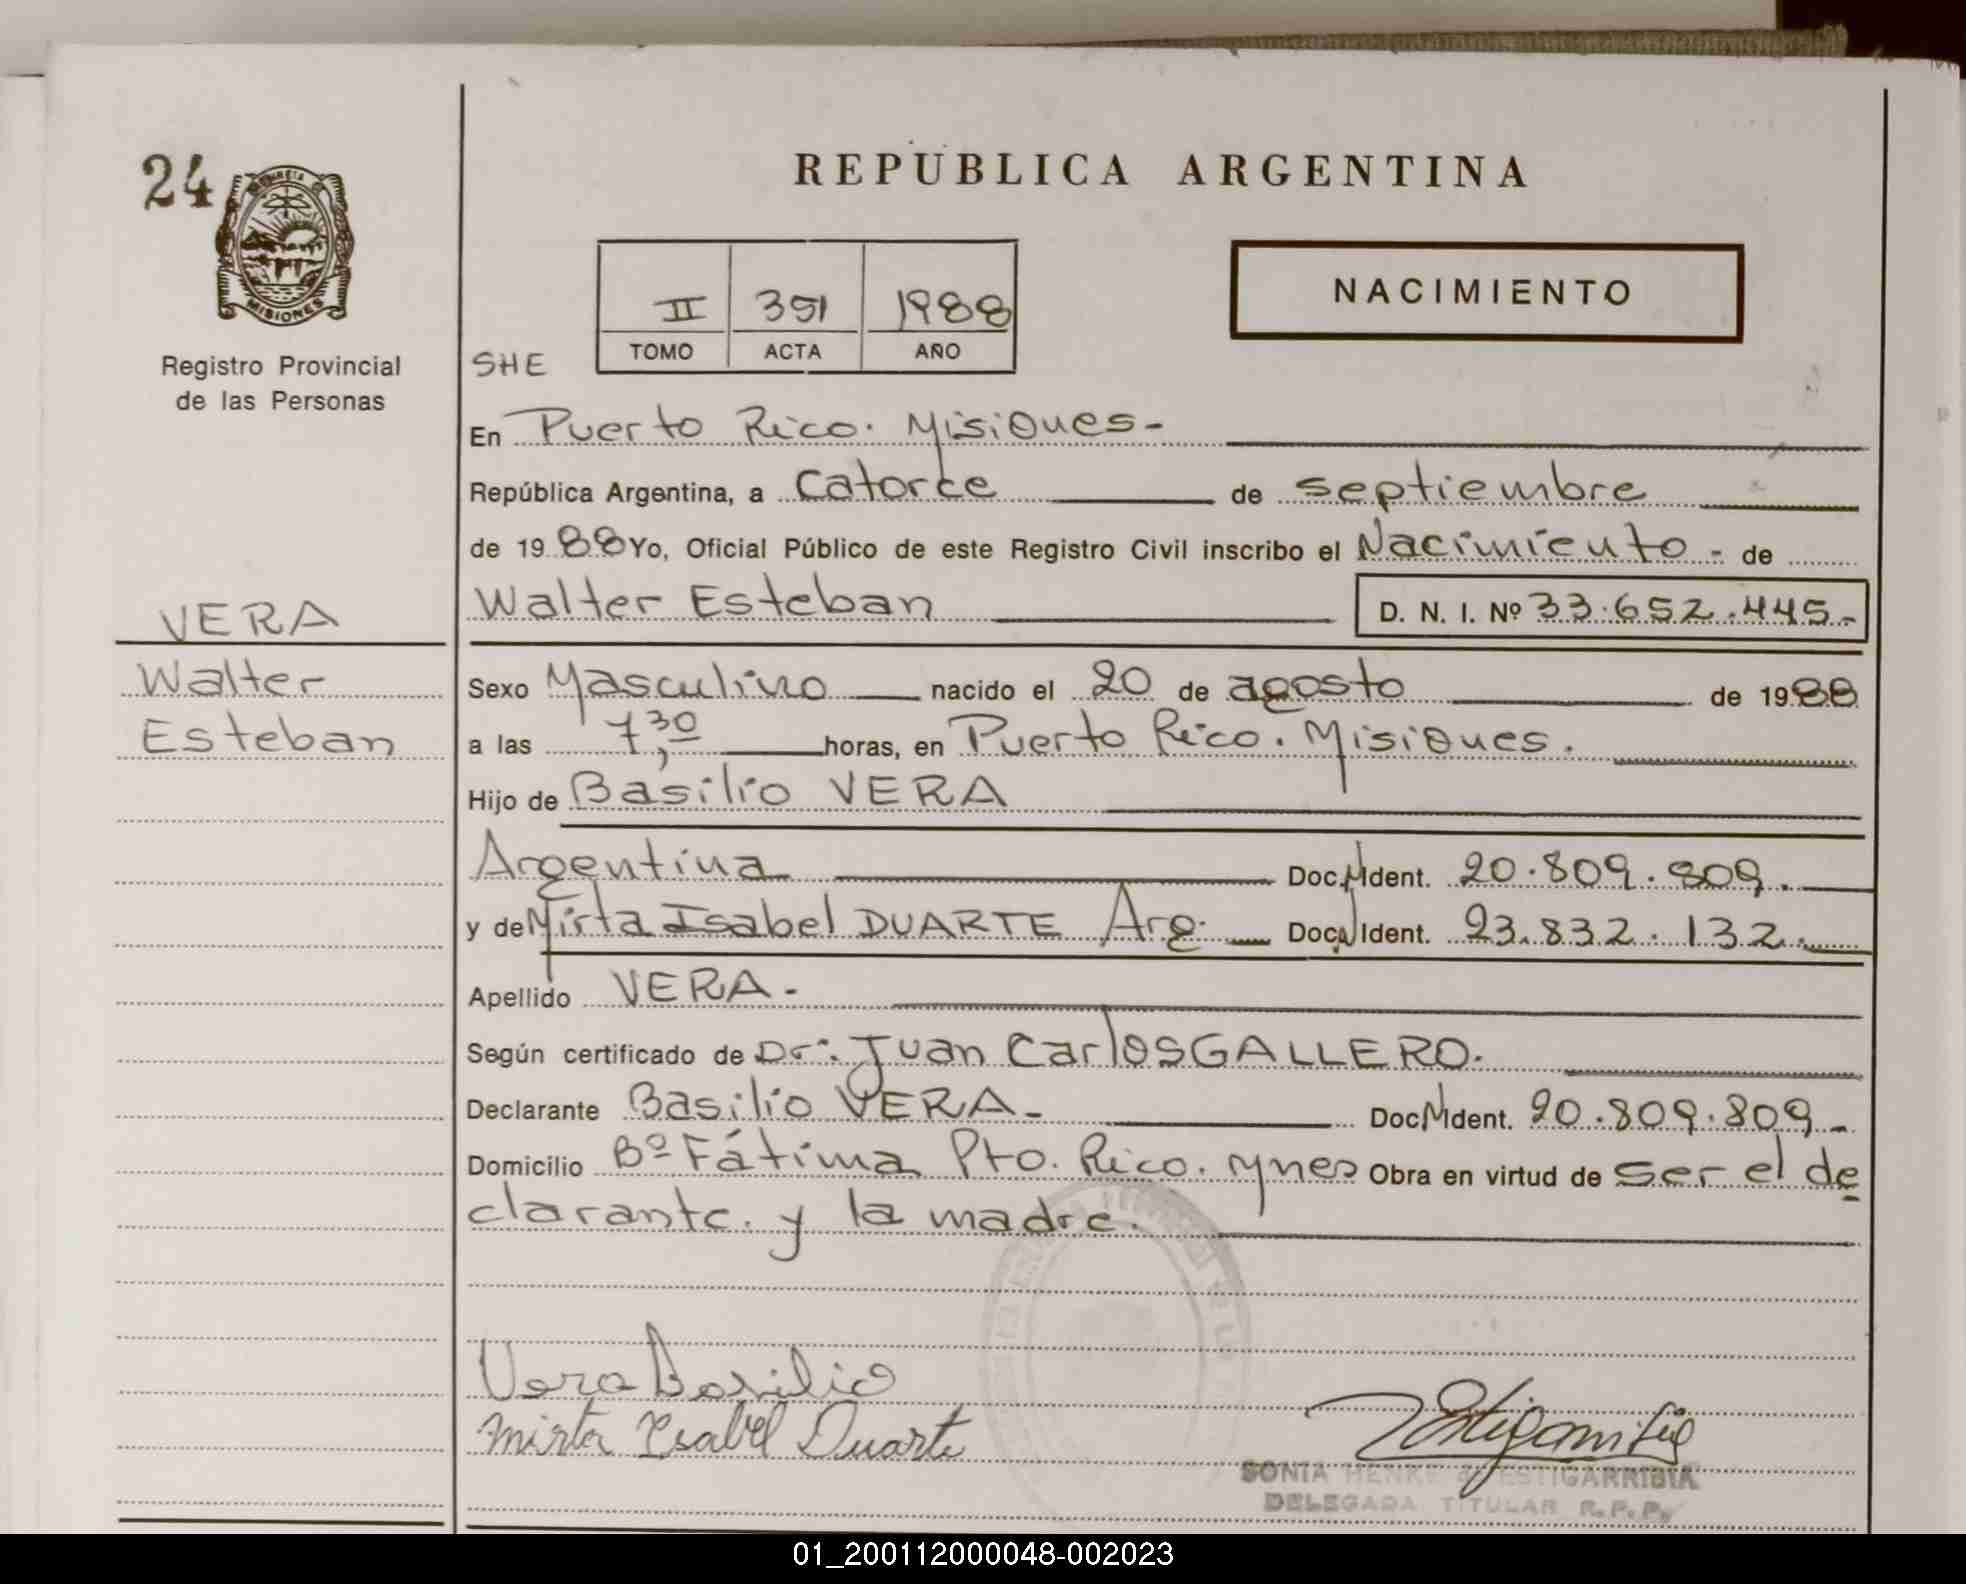 24
REPUBLICA ARGENTINA
MISIONES
II 391 1988
TOMO ACTA AÑO
NACIMIENTO
Registro Provincial
de las Personas
SHE
En Puerto Rico. Misiones-
República Argentina, a catorce de septiembre
de 1988 Yo, Oficial Público de este Registro Civil inscribo el Nacimiento - de
VERA
Walter
Esteban
Walter Esteban D. N. I. Nº 33.652.445.-
Sexo Masculino nacido el 20 de agosto de 1988
a las 7,30 horas, en Puerto Rico. Misiones.
Hijo de Basilio VERA
Argentina Doc. Ident. 20.809.809.
y de Mirta Isabel DUARTE Arg. Doc. Ident. 23.832.132.
Apellido VERA-
Según certificado de Dr. Juan Carlos GALLERO.
Declarante Basilio VERA- Doc. Ident. 20.809.809-
Domicilio Bº Fátima Pto. Rico. Mnes Obra en virtud de ser el de
clarante. y la madre.
Vera Basilio
Mirta Ysabel Duarte
SONIA HENKE de ESTIGARRIBIA
DELEGADA TITULAR R.P.P.
01_200112000048-002023